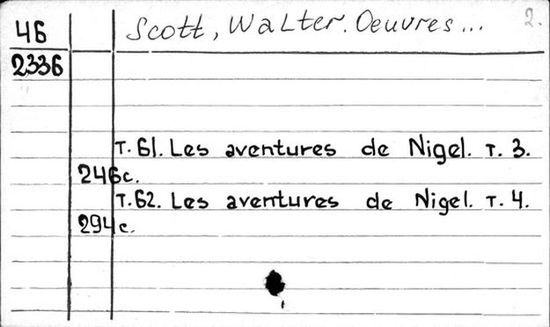 46 Scott, Walter. Oeuvres... 2.
2336
T. 61. Les aventures de Nigel. T. 3.
246c.
T. 62. Les aventures de Nigel. T. 4.
294c.